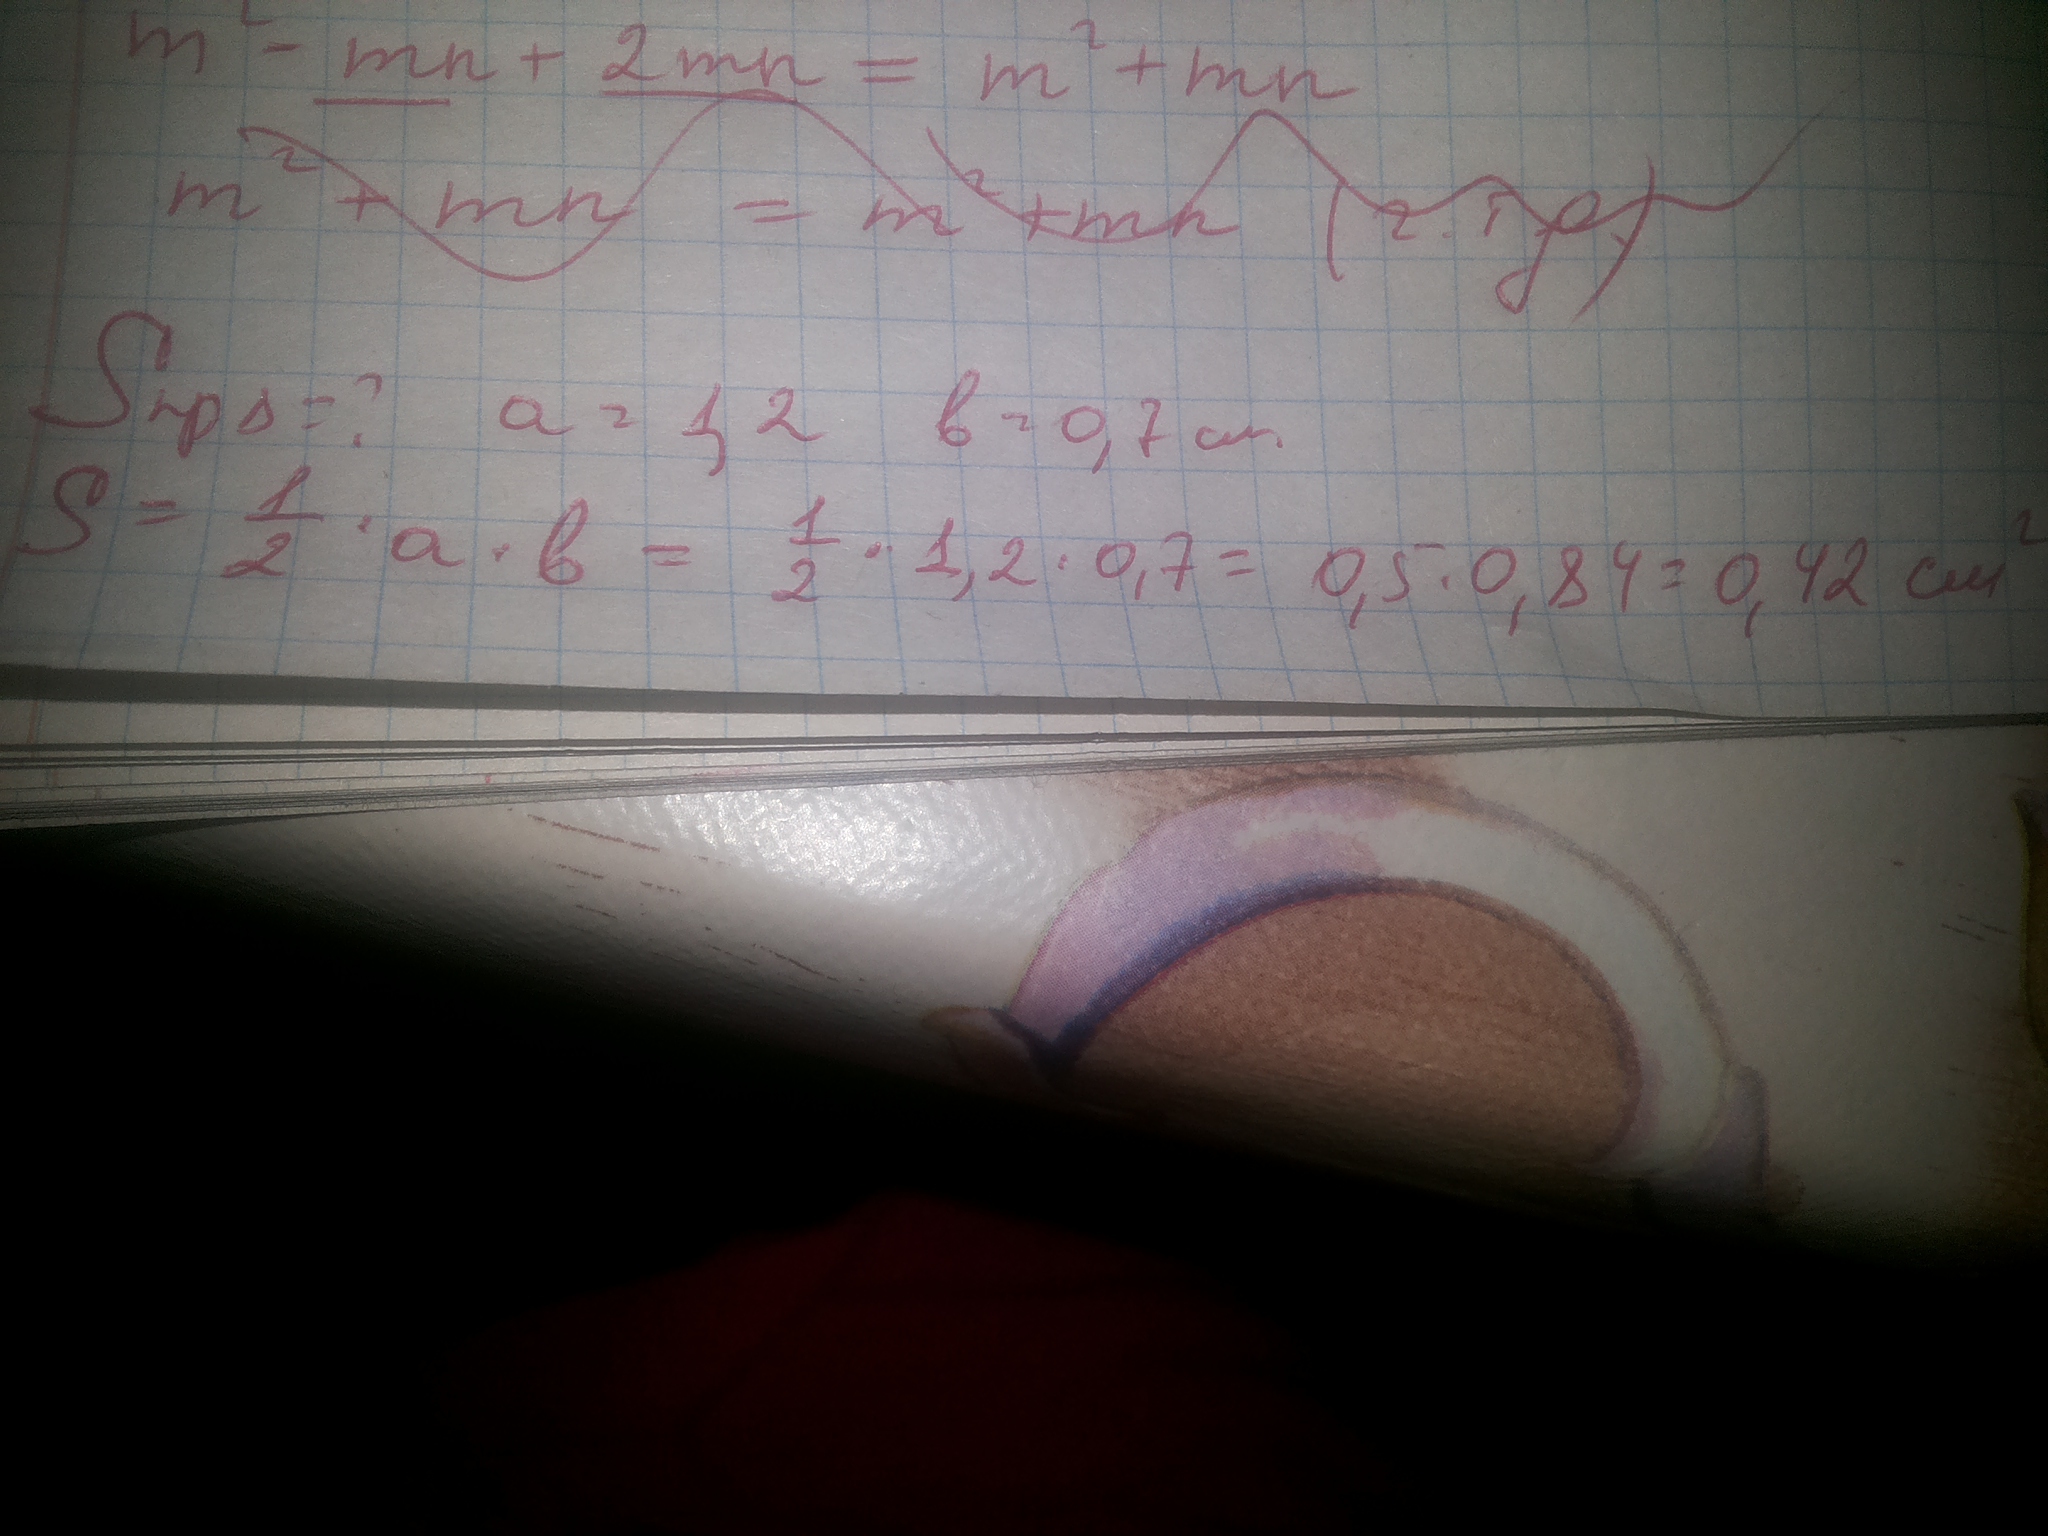 m² - mn + 2mn = m² + mn
m² + mn = m² + mn (ч.т.д)
Sпр∆=? a = 1,2 в = 0,7 см.
S = 1/2 · a · в = 1/2 · 1,2 · 0,7 = 0,5 · 0,84 = 0,42 см²